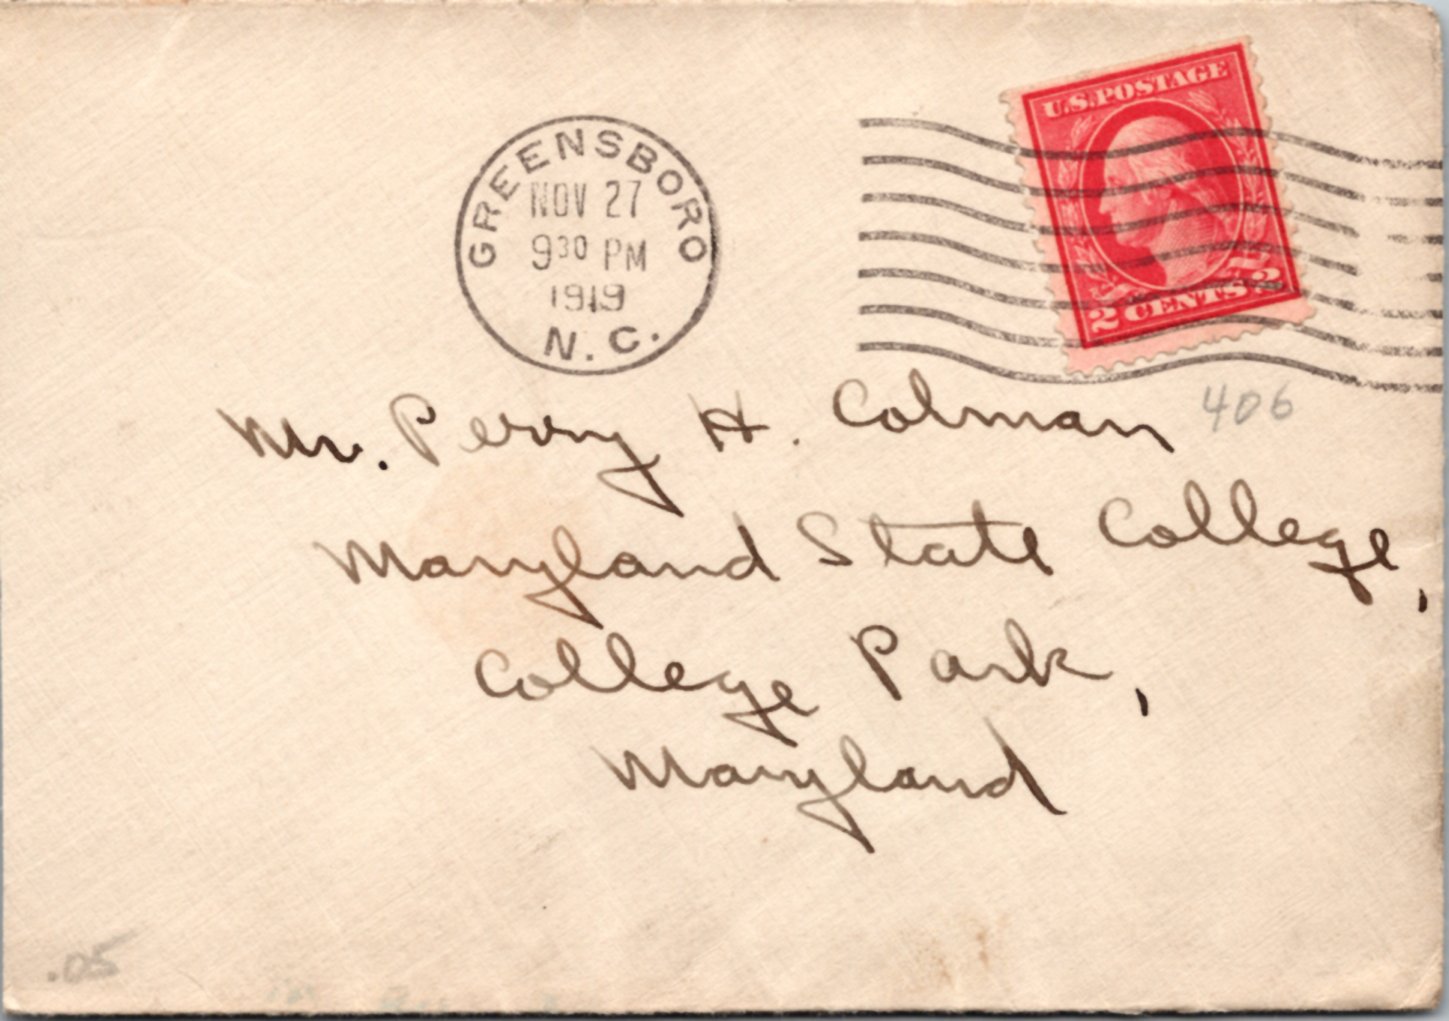 U.S. POSTAGE
2 CENTS 2
GREENSBORO
NOV 27
9 30 PM
1919
N.C.
406
Mr. Perry H. Colman
Maryland State College,
College Park,
Maryland
.05